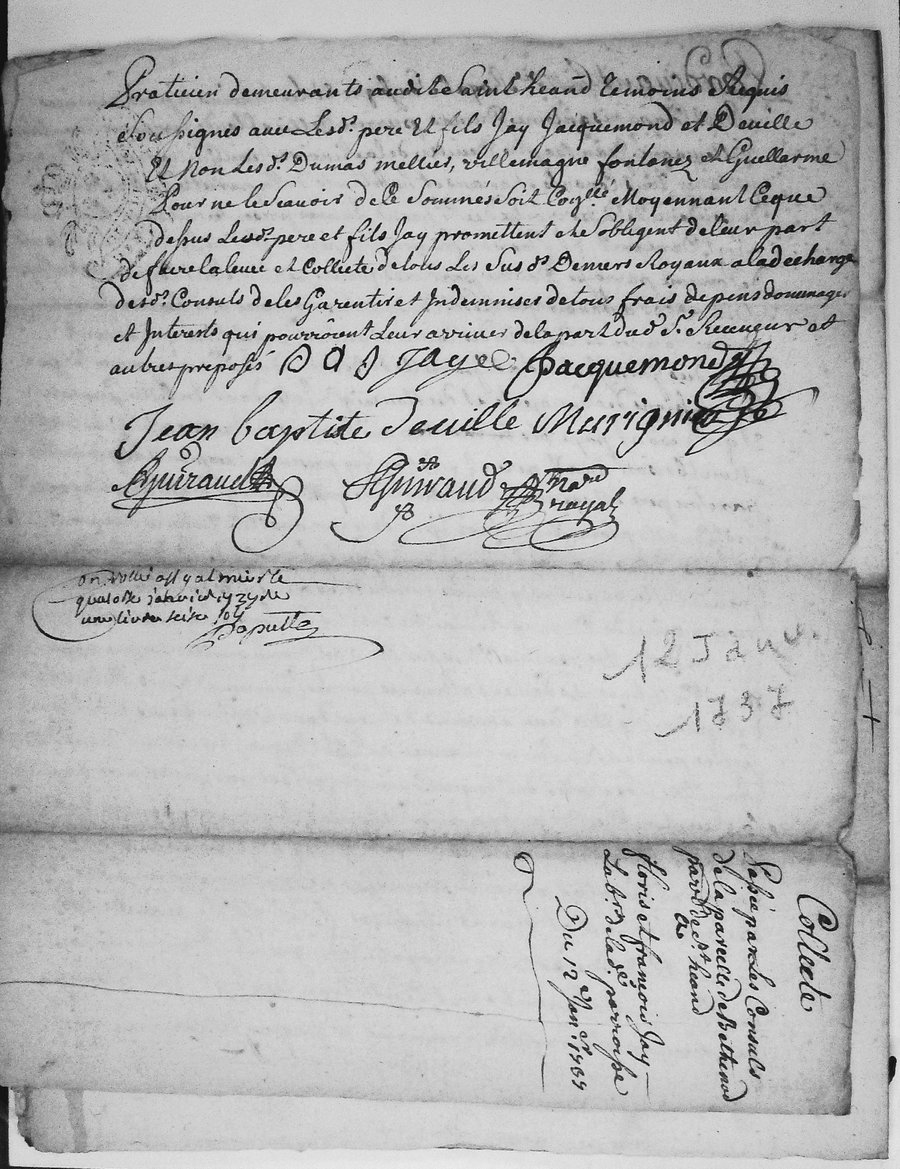 Praticien demeurants audit Saint heand temoins Requis
Soussignes avec Lesd.^s pere Et fils Jay Jacquemond et Deville
Et Non Les d.^s Dumas mellier, villemagne fontanez et Guellarme
Pour ne le Scavoir de Ce Sommés Soit Moyennant Ceque
dessus Lesd.^s pere et fils Jay promettent et Sobligent de leur part
de faire la levée et Collecte de tous Les Susd.^s Deniers Royaux a la decharge
desd.^s Consuls de les Garentir et Indemniser de tous frais depens dommages
et Interests qui pourroient Leur arriver de la part dud. S.^r Receveur et
autres preposés Jaye Jacquemond
Jean baptiste deville Marignier
Guiraud Guiraud Nard royal
quatorze janvier 1737
une livre seize sols
12 Janv.
1737
Collecte
Passée par Les Consuls
de la parcelle de Bethenod
par^sse de S^t heand
a
floris et francois Jay
Lab^rs de lad. parroisse
Du 12^e Janv^er 1737